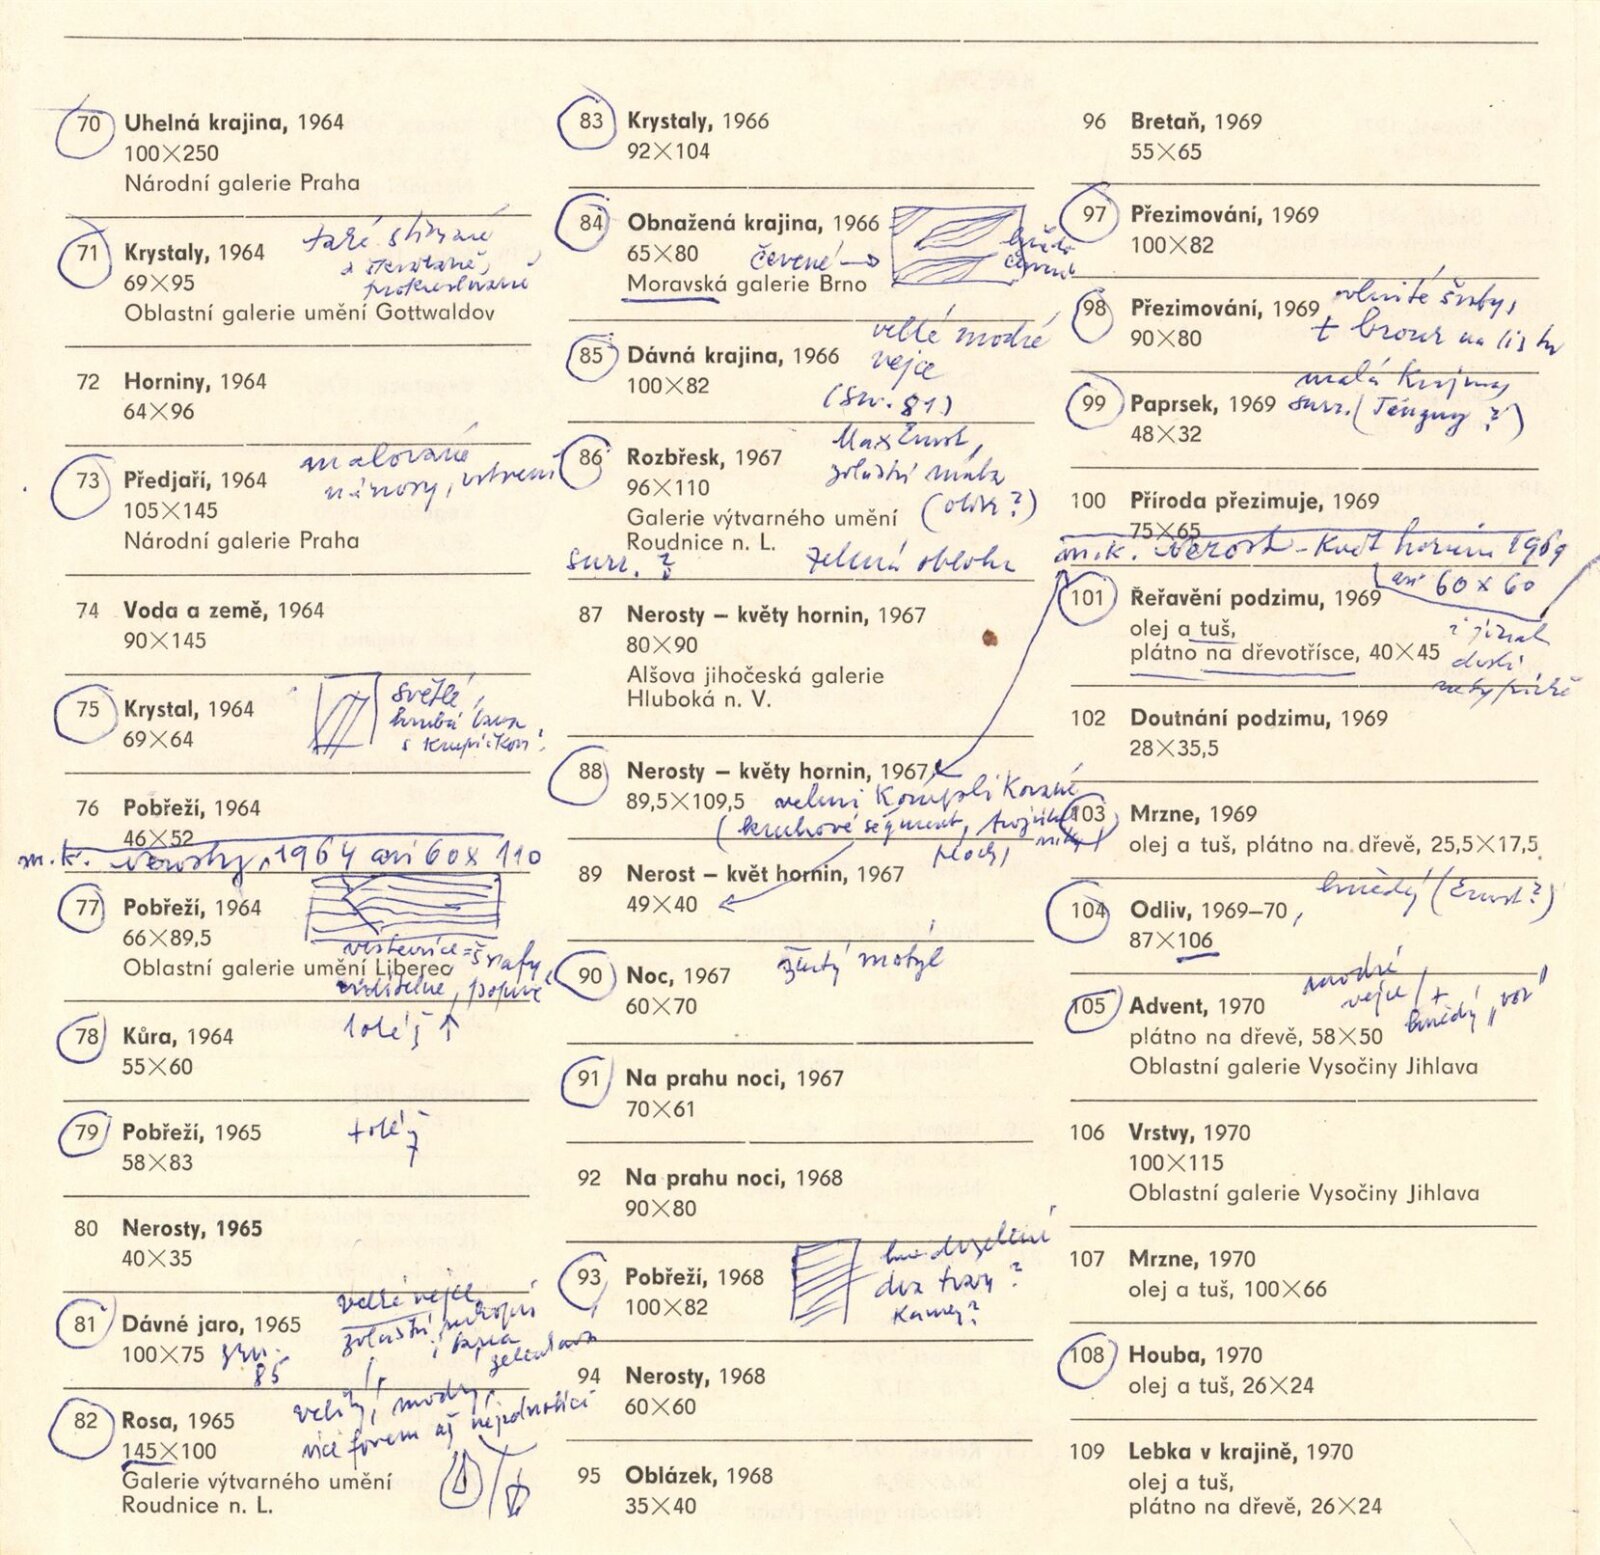 70 Uhelná krajina, 1964
100×250
Národní galerie Praha
71 Krystaly, 1964
také
69×95
Oblastní galerie umění Gottwaldov
72 Horniny, 1964
64×96
malované
73 Předjaří, 1964
nánosy, vrstvení
105×145
Národní galerie Praha
74 Voda a země, 1964
90×145
75 Krystal, 1964
světlé,
hrubá
69×64
76 Pobřeží, 1964
46×52
m.k. Nerosty, 1964 asi 60×110
77 Pobřeží, 1964
66×89,5
vrstevnice = šrafy
Oblastní galerie umění Liberec
viditelné, poprvé
78 Kůra, 1964
totéž ↑
55×60
79 Pobřeží, 1965
totéž
58×83
80 Nerosty, 1965
40×35
velké vejce
81 Dávné jaro, 1965
zvláštní
100×75
85
82 Rosa, 1965
více forem až
145×100
Galerie výtvarného umění
Roudnice n. L.
83 Krystaly, 1966
92×104
84 Obnažená krajina, 1966
65×80
červené →
Moravská galerie Brno
velké modré
85 Dávná krajina, 1966
vejce
100×82
(srv. 81)
Max Ernst,
86 Rozbřesk, 1967
zvláštní
96×110
Galerie výtvarného umění
Roudnice n. L.
surr. ?
zelená obloha
87 Nerosty – květy hornin, 1967
80×90
Alšova jihočeská galerie
Hluboká n. V.
88 Nerosty – květy hornin, 1967
89,5×109,5
velmi komplikované
(kruhové segment,
plochy
89 Nerost – květ hornin, 1967
49×40
90 Noc, 1967
žlutý motýl
60×70
91 Na prahu noci, 1967
70×61
92 Na prahu noci, 1968
90×80
93 Pobřeží, 1968
dva tvary ?
100×82
Kameny?
94 Nerosty, 1968
60×60
95 Oblázek, 1968
35×40
96 Bretaň, 1969
55×65
97 Přezimování, 1969
100×82
98 Přezimování, 1969
vlnité šrafy,
90×80
+ brouk na listu
malá krajina
99 Paprsek, 1969
surr. (Tanguy ?)
48×32
100 Příroda přezimuje, 1969
75×65
m.k. Nerost – Květ hornin 1969
asi 60×60
101 Řeřavění podzimu, 1969
olej a tuš,
plátno na dřevotřísce, 40×45
102 Doutnání podzimu, 1969
28×35,5
103 Mrzne, 1969
olej a tuš, plátno na dřevě, 25,5×17,5
hnědý (Ernst?)
104 Odliv, 1969–70,
87×106
modré
vejce +
105 Advent, 1970
hnědý
plátno na dřevě, 58×50
Oblastní galerie Vysočiny Jihlava
106 Vrstvy, 1970
100×115
Oblastní galerie Vysočiny Jihlava
107 Mrzne, 1970
olej a tuš, 100×66
108 Houba, 1970
olej a tuš, 26×24
109 Lebka v krajině, 1970
olej a tuš,
plátno na dřevě, 26×24